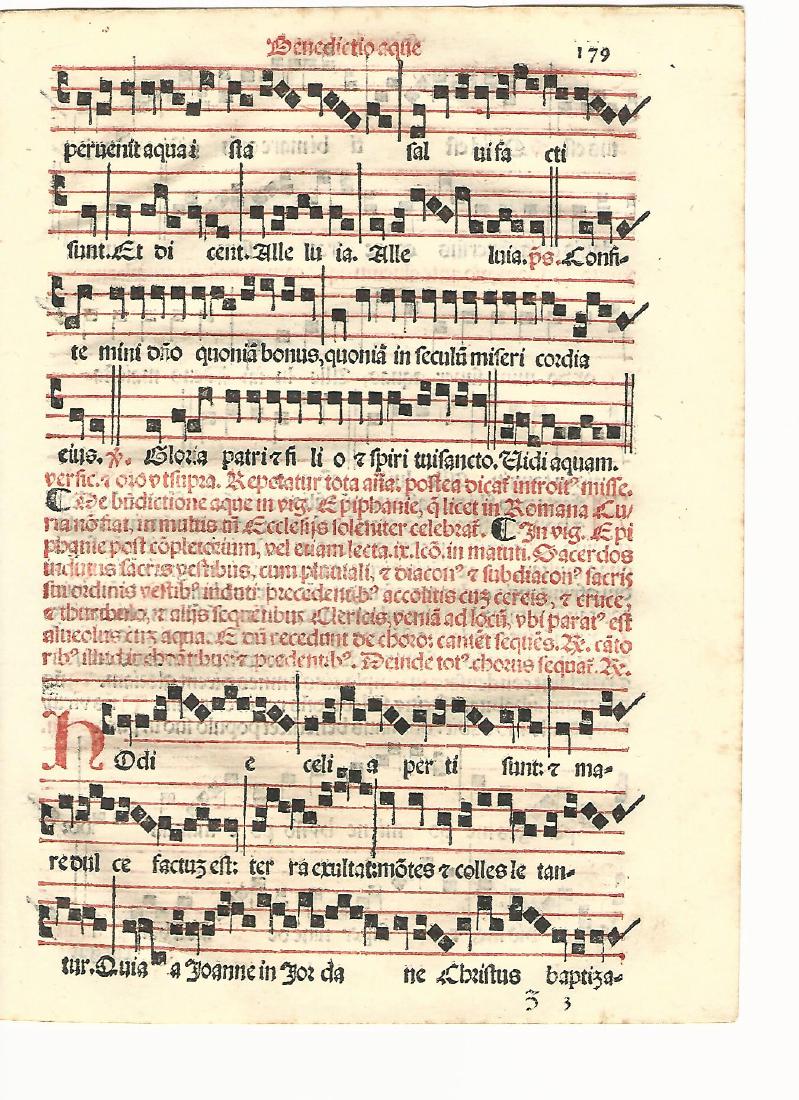 Benedictio aque 179
peruenit aqua i sta sal ui fa cti
sunt. Et di cent. Alle lu ia. Alle luia. p̄s. Confi-
te mini dño quoniã bonus, quoniã in seculũ miseri cordia
eius. ℣. Gloria patri ⁊ fi li o ⁊ spiri tui sancto. Uidi aquam.
versic. ⁊ oro vt supra. Repetatur tota aña. postea dicat̃ introitꝰ misse.
De bñdictione aque in vig. Epiphanie, q̃ licet in Romana Cu/
ria nõ fiat, in multis tñ Ecclesijs soleniter celebrat̃. In vig. Epi
phanie post cõpletorium, vel etiam lecta .ix. lcõ. in matuti. Sacerdos
indutus sacris vestibus, cum pluuiali, ⁊ diaconꝰ ⁊ subdiaconꝰ sacris
sui ordinis vestibꝰ induti precedentibꝰ accolitis cuz cereis, ⁊ cruce,
⁊ thuribulo, ⁊ alijs sequẽtibus Clericis, veniã ad locũ, vbi paratꝰ est
alueolus cuz aqua. Et dũ recedunt de choro: cantẽt sequẽs. ℟. cãto
ribꝰ illud inchoãtibus: ⁊ precedentibꝰ. Deinde totꝰ chorus sequat̃. ℟.
HOdi e celi a per ti sunt: ⁊ ma-
re dul ce factuz est: ter ra exultat: mõtes ⁊ colles le tan-
tur. Quia a Joanne in Jor da ne Christus baptiza-
3